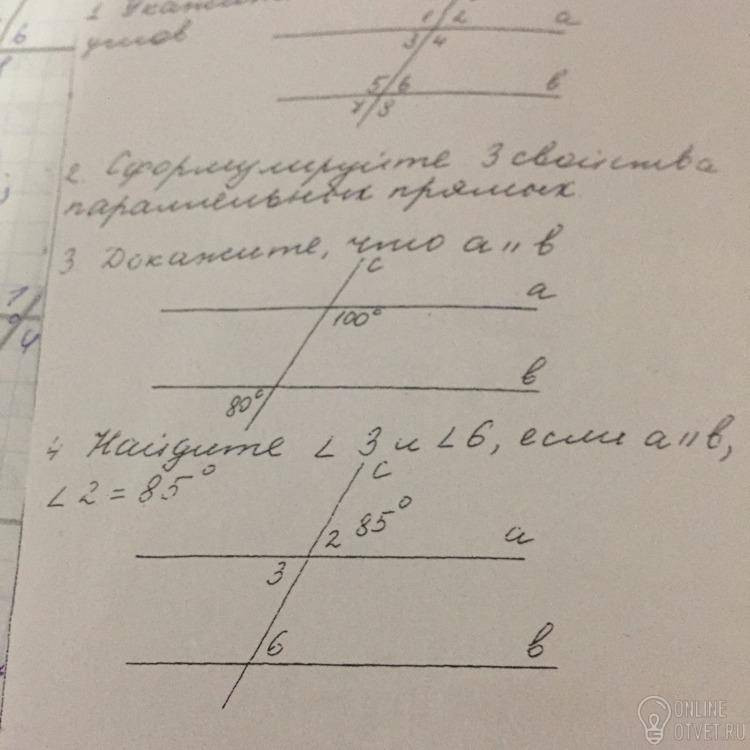 6
1. Укажите
углов
1 2 a
3 4
5 6 в
7 8
2. Сформулируйте 3 свойства
параллельных прямых.
3. Докажите, что a || в
c
a
100°
в
80°
1
4
4. Найдите ∠ 3 и ∠6, если a || в,
∠2 = 85°
c
2 85° a
3
6 в
ONLINE
OTVET.RU